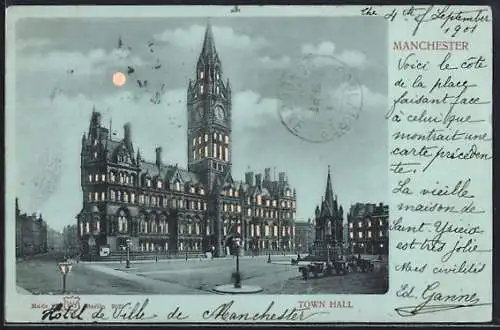 the 4th of September
1901
MANCHESTER
Voici le côté
de la place
faisant face
à celui que
montrait une
carte précéden
te.
La vieille
maison de
Saint-Yrieix
est très jolie
Mes civilités
Ed. Gannes
TOWN HALL
Made Berlin
Hôtel de Ville de Manchester